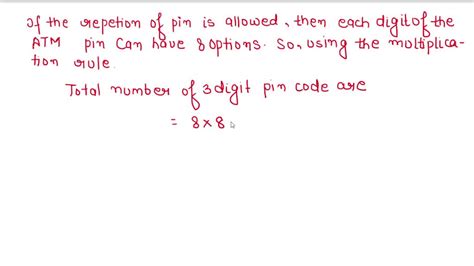 If the repetion of pin is allowed, then each digit of the
ATM pin can have 8 options. So, using the multiplica-
tion rule.
Total number of 3 digit pin code are
= 8 × 8